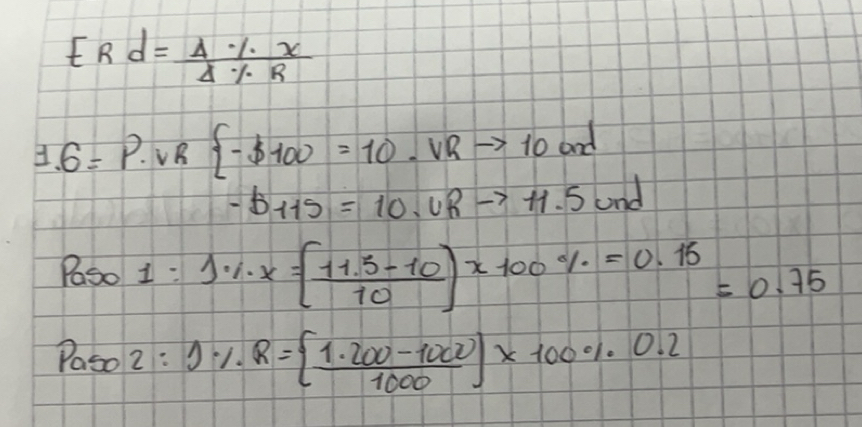 ERd = Δ % x / Δ % R
I.G = P.VR { -$100 = 10.VR → 10 und
-$115 = 10.VR → 11.5 und
Paso 1 : Δ%.x = [11.5-10 / 10] x 100 % = 0.15
= 0.75
Paso 2 : Δ%.R = [1.200-1000 / 1000] x 100% 0.2